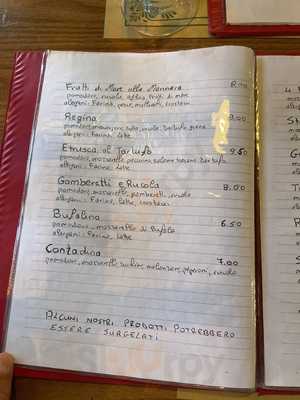 Frutti di Mare alla Marinara 8.00
pomodoro, rucola, aglio, frutti di mare
allergeni: Farina, pesce, molluschi, crostacei
Regina 9.00
pomodoro, mozzarella, tartufo grana
allergeni: Farina, Latte
Etrusca al Tartufo 9.50
pomodoro, mozzarella, pecorino, salame toscano, tartufo
allergeni: Farina, Latte
Gamberetti e Rucola 8.00
pomodoro, mozzarella, gamberetti, rucola
allergeni: Farina, Latte, crostacei
Bufalina 6.50
pomodoro, mozzarella di Bufala
allergeni: Farina, Latte
Contadina 7.00
pomodoro, mozzarella, zucchine, melanzane, peperoni, rucola
ALCUNI NOSTRI PRODOTTI POTREBBERO
ESSERE SURGELATI